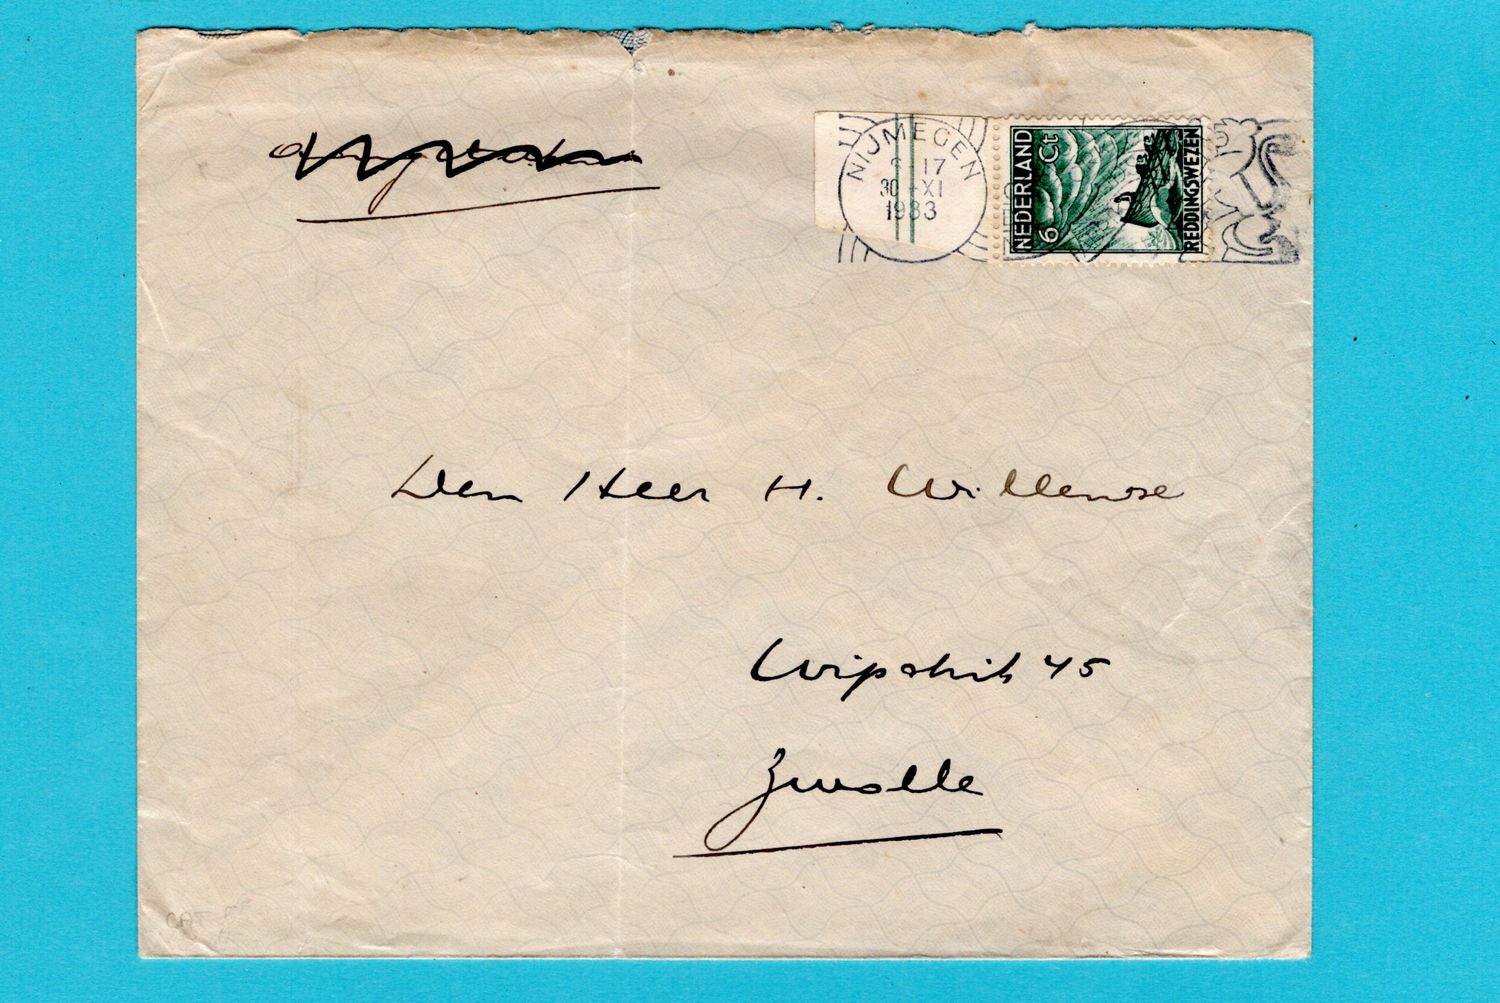 NIJMEGEN
-17
30 XI
1933
NEDERLAND
6 Ct
REDDINGSWEZEN
Den Heer H. Willemse
Wipstrik 45
Zwolle